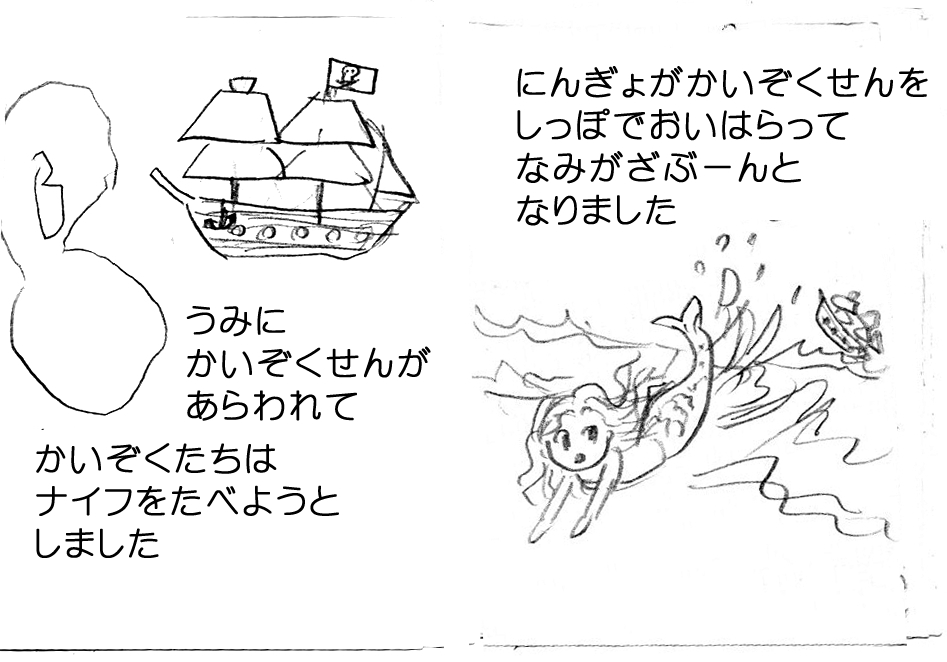 うみに
かいぞくせんが
あらわれて
かいぞくたちは
ナイフをたべようと
しました
にんぎょがかいぞくせんを
しっぽでおいはらって
なみがざぶーんと
なりました